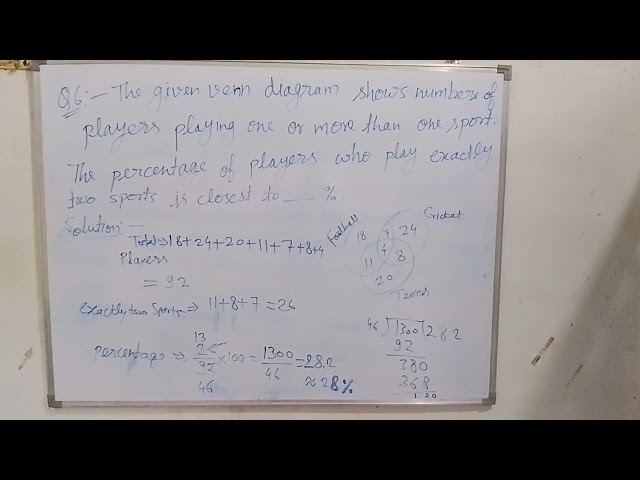 Q6:- The given venn diagram shows numbers of
players playing one or more than one sport.
The percentage of players who play exactly
two sports is closest to __ %.
Solution:-
Total ⇒ 18+24+20+11+7+8+4
Players
= 92
exactly two Sports ⇒ 11+8+7=26
percentage ⇒ 26/92 × 100 = 1300/46 = 28.2
13
46
≈ 28%
Football
Cricket
18 7 24
4
11 8
20
Tennis
46 ) 1300 ( 28.2
92
380
368
120